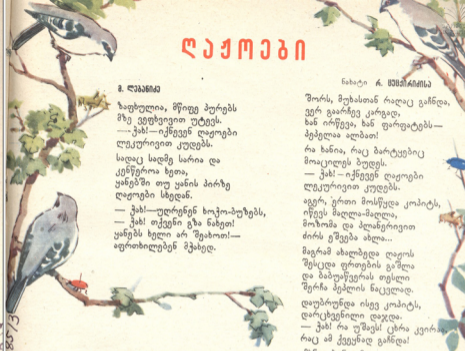 ღაჟოები
მ. ლებანიძე
ზაფხულია, მწიფე პურებს
მზე ვეფხვივით უტევს.
— კახ!—იქნევენ ღაჟოები
ლეკურივით კუდებს.
სადაც სადმე სარია და
კენწეროა ხეთა,
ყანებში თუ ყანის პირზე
ღაჟოები სხედან.
— კახ!—უღრენენ ხოჭო-ბუზებს,
— კახ! თქვენი გზა ნახეთ!
ყანებს ხელი არ შეახოთ!—
აფრთხილებენ მკახედ.
ნახატი რ. ცუცქირიძისა
შორს, მუხასთან რაღაც გაჩნდა,
ვერ გაარჩევ კარგად,
ხან ირწევა, ხან ფარფატებს—
პეპელაა ალბათ!
რა ხანია, რაც ბარტყებიც
მოაცილეს ბუდეს.
— კახ! — იქნევენ ღაჟოები
ლეკურივით კუდებს.
აგერ, ერთი მოსწყდა კოპიტს,
იწევს მაღლა-მაღლა,
მოზომა და პლანერივით
ძირს ეშვება ახლა...
მაგრამ ახალბედა ღაჟოს
შესცდა ფრთების გაშლა
და ბაბუაწვერას თესლი
შერჩა პეპლის ნაცვლად.
დაუბრუნდა ისევ კოპიტს,
დარცხვენილი დაჯდა.
— კახ! რა უშავს! ცხრა კვირაა,
რაც ამ ქვეყნად გაჩნდა!